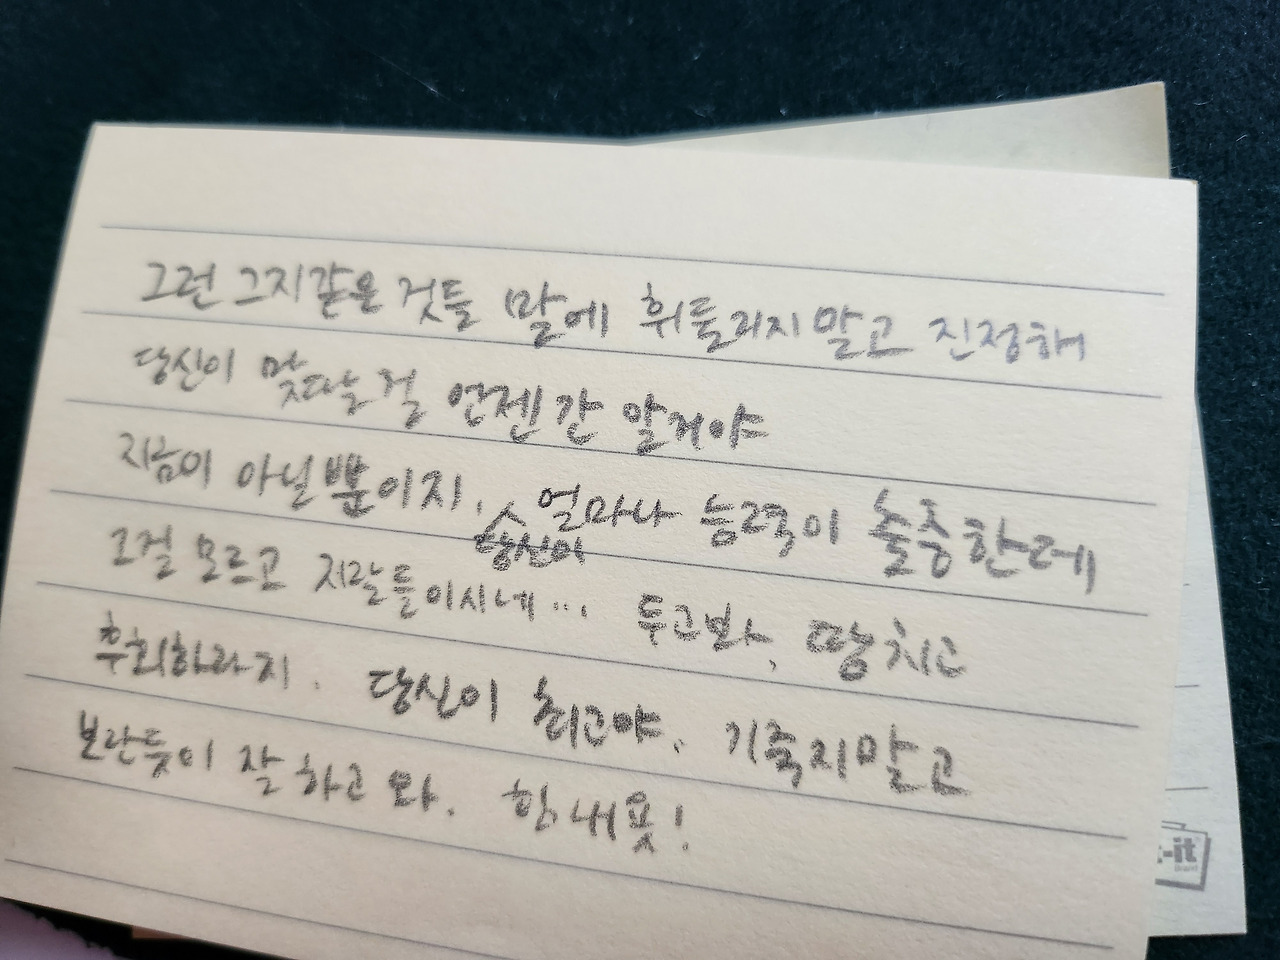 그런 그지같은 것들 말에 휘둘리지말고 진정해
당신이 맞따는걸 언젠간 알게야
지금이 아닐뿐이지. 얼마나 능력이 출중한데
당신이
그걸 모르고 지랄들이시네... 두고봐, 땅치고
후회하라지. 당신이 최고야. 기죽지말고
보란듯이 잘 하고 와. 힘내욧!
-it